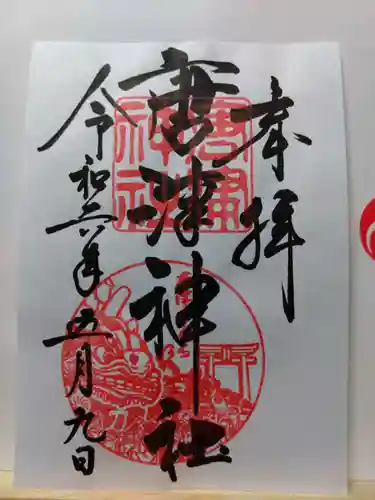 奉拝
唐津神社
令和六年五月九日